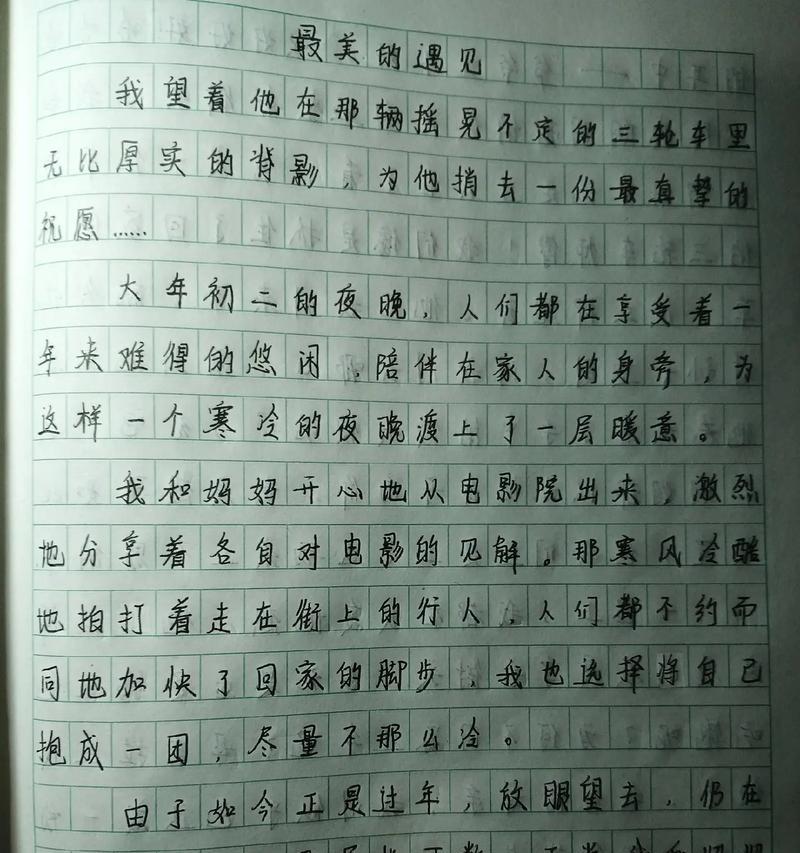 最美的遇见
我望着他在那辆摇晃不定的三轮车里
无比厚实的背影，为他捎去一份最真挚的
祝愿……
大年初二的夜晚，人们都在享受着一
年来难得的悠闲，陪伴在家人的身旁，为
这样一个寒冷的夜晚渡上了一层暖意。
我和妈妈开心地从电影院出来，激烈
地分享着各自对电影的见解。那寒风冷酷
地拍打着走在街上的行人，人们都不约而
同地加快了回家的脚步，我也选择将自己
抱成一团，尽量不那么冷。
由于如今正是过年，放眼望去，仍在